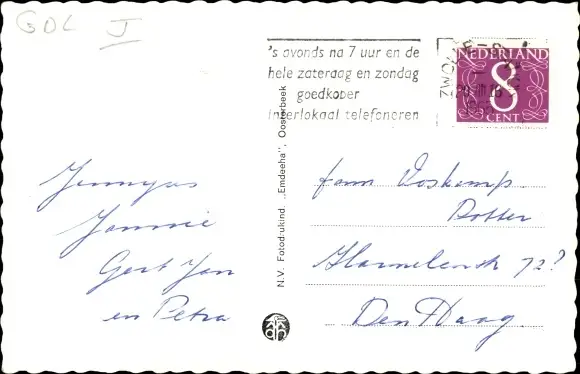 GOL J
's avonds na 7 uur en de
hele zaterdag en zondag
goedkoper
interlokaal telefoneren
ZWOLLE
NEDERLAND
8
CENT
N.V. Fotodrukind. „Emdeeha”, Oosterbeek
Jannie
Gert Jan
en Petra
fam Voskamp
Potter
72?
Den Haag